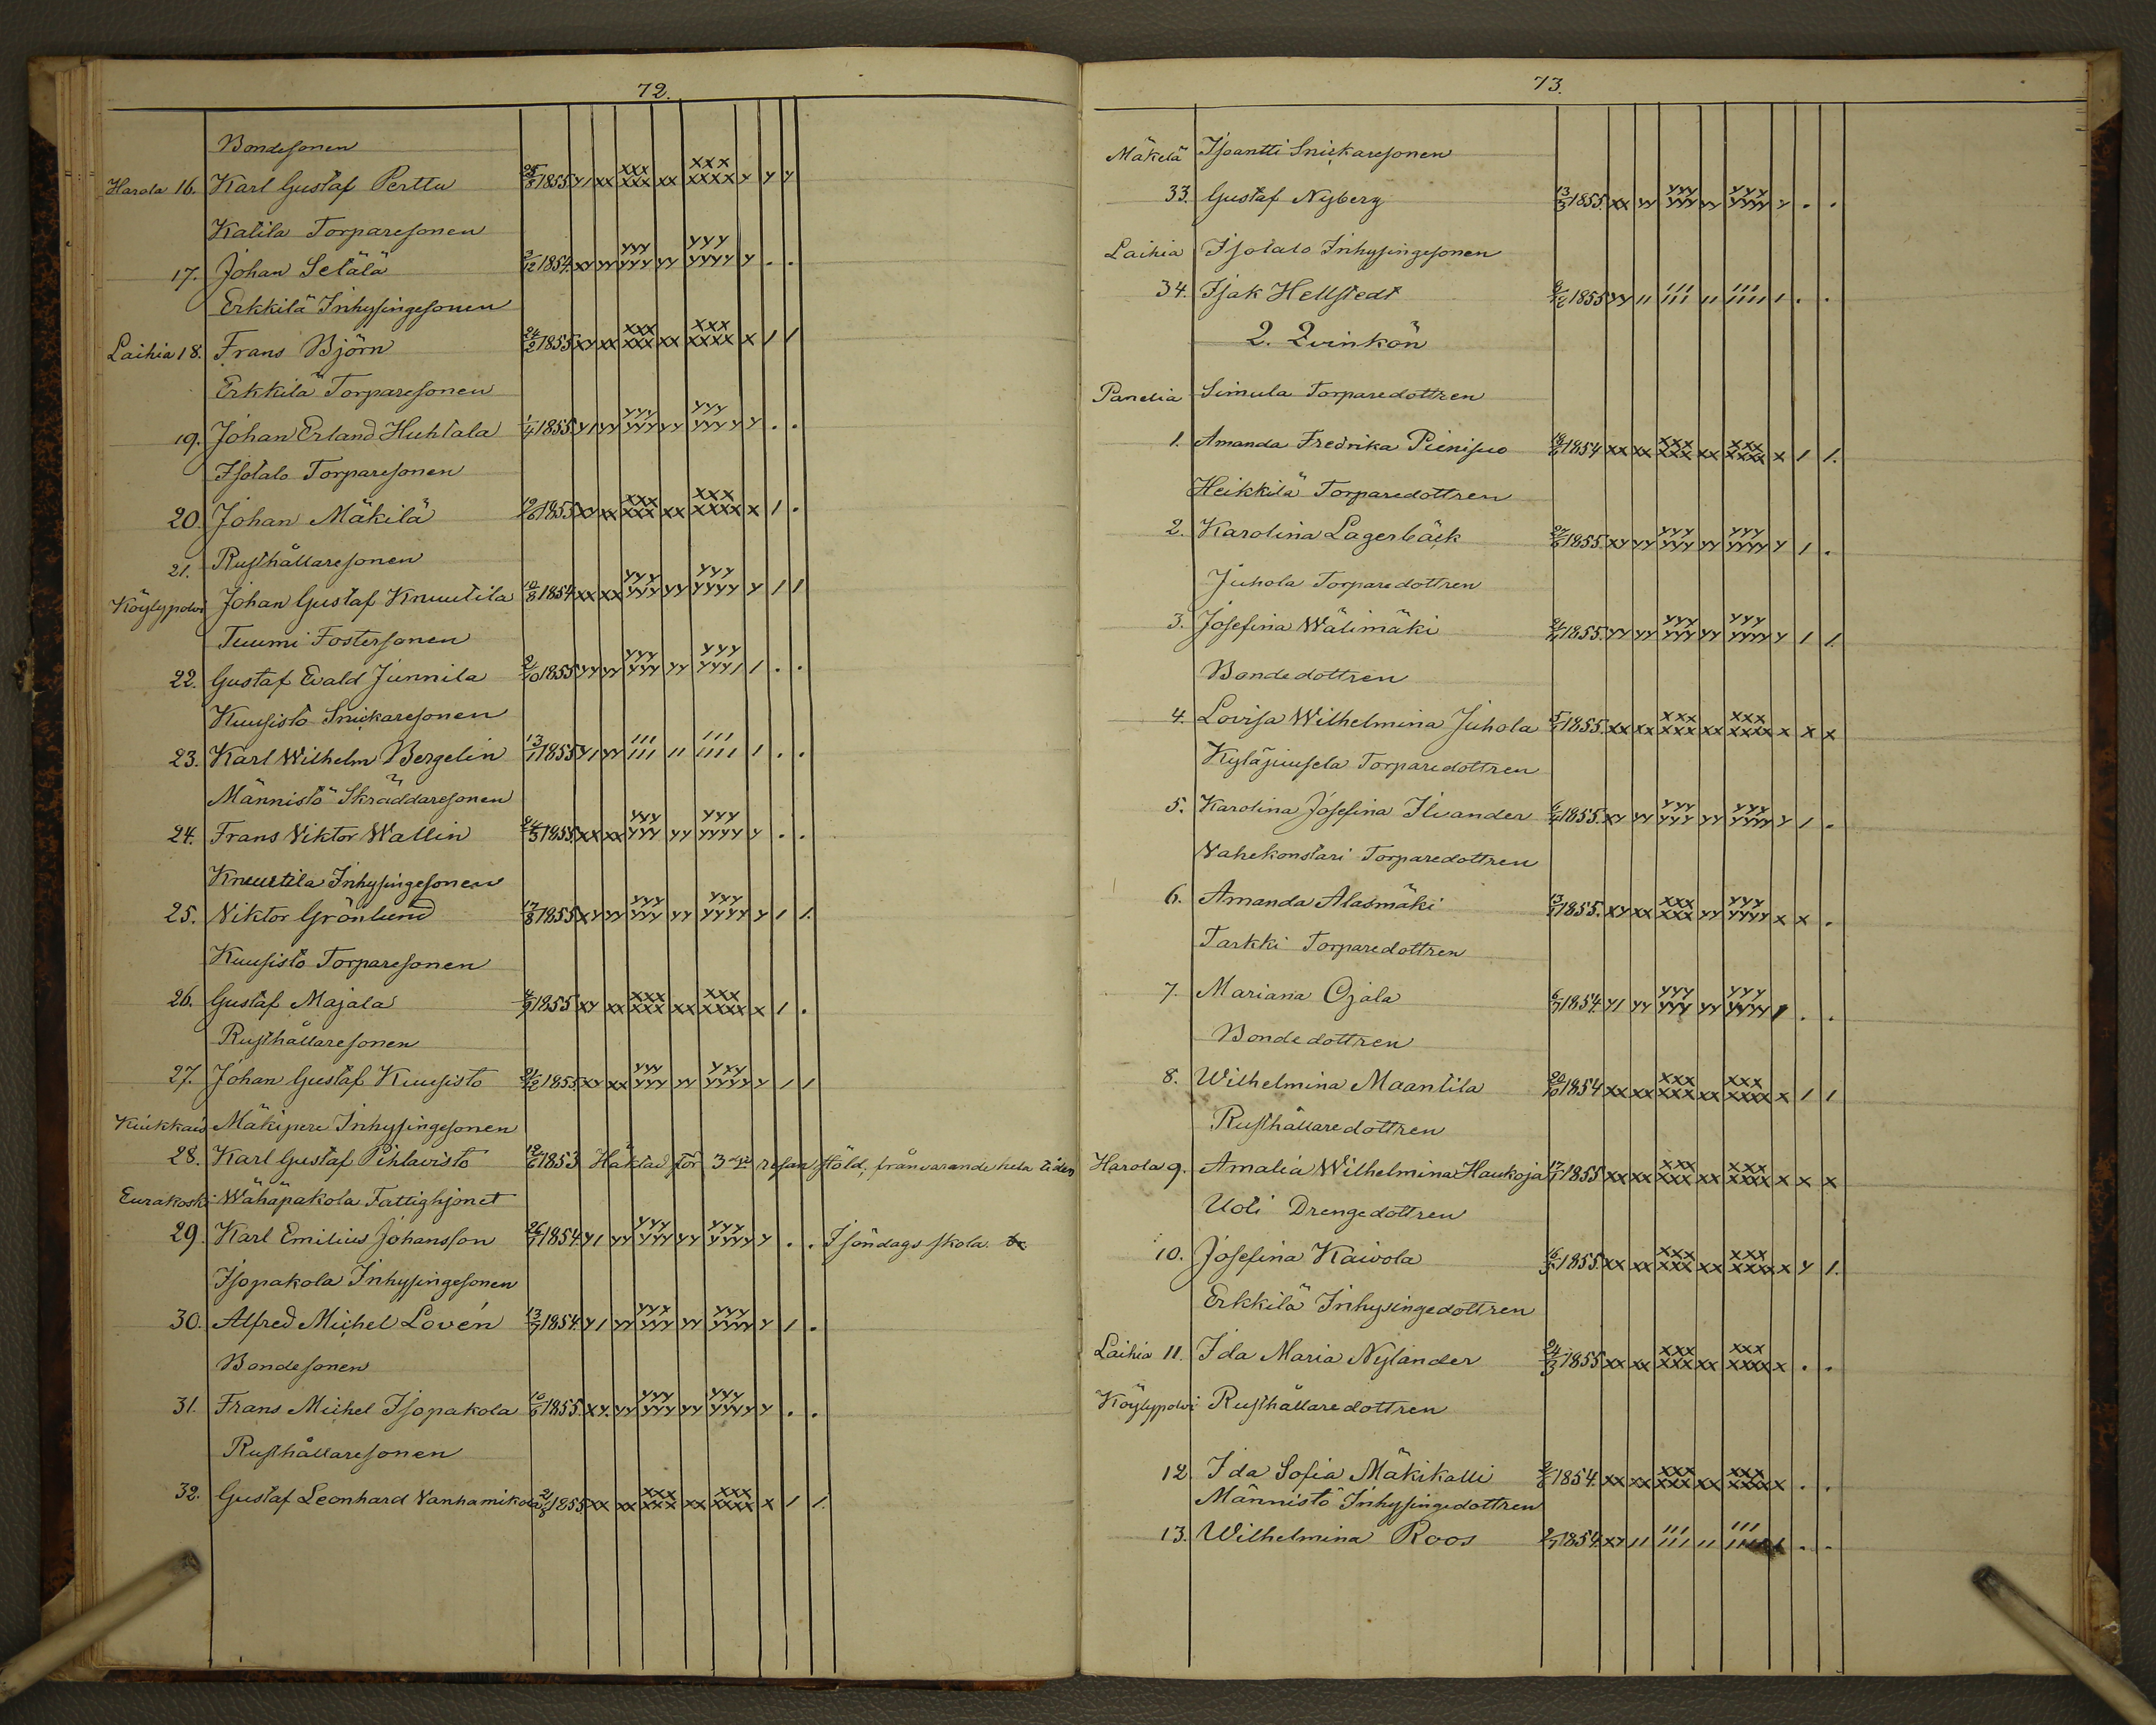 72.
Bondesonen
Harola 16. Karl Gustaf Perttu 25/8 1855 y1 xx xxx xxx xx xxx xxxx y y y
Katila Torparesonen
17. Johan Setälä 2/12 1854. xy yy yyy yyy yy yyy yyyy y . .
Erkkilä Inhysingesonen
Laihia 18. Frans Björn 24/2 1855 xy xx xxx xxx xx xxx xxxx x 1 1
Erkkilä Torparesonen
19. Johan Erland Huhtala 1/4 1855 y1 yy yyy yyy yy yyy yyyy y . .
Isotalo Torparesonen
20. Johan Mäkilä 1855 xy xx xxx xxx xx xxx xxxx x 1 .
21. Rusthållaresonen
Köylypolvi Johan Gustaf Knuutila 10/8 1854 xx xx yyy yyy yy yyy yyyy y 1 1
Tuumi Fostersonen
22. Gustaf Evald Junnila 2/10 1855 yy yy yyy yyy yy yyy yyy1 1 . .
Kuusisto Snickaresonen
23. Karl Wilhelm Bergelin 13/1 1855 y1 yy 111 111 11 111 1111 1 . .
Männistö Skräddaresonen
24. Frans Viktor Wallin 24/3 1855. xx xx yyy yyy yy yyy yyyy y . .
Knuutila Inhysingesonen
25. Viktor Grönlund 17/8 1855 xy yy yyy yyy yy yyy yyyy y 1 1.
Kuusisto Torparesonen
26. Gustaf Majala 4/9 1855 xy xx xxx xxx xx xxx xxxx x 1 .
Rusthållaresonen
27. Johan Gustaf Kuusisto 21/12 1855. xy xx yyy yyy yy yyy yyyy y 1 1
Kiukkais Mäkipere Inhysingesonen
28. Karl Gustaf Pihlavisto 12/6 1853 Häktad för 3dje resan stöld, frånvarande hela tiden
Eurakoski Wähäpakola Fattighjonet
29. Karl Emilius Johansson 26/1 1854. y1 yy yyy yyy yy yyy yyyy y . . I söndags skola.
Isopakola Inhysingesonen
30. Alfred Michel Lovén 13/7 1854. y1 yy yyy yyy yy yyy yyyy y 1 .
Bondesonen
31. Frans Michel Isopakola 10/6 1855. xy. yy yyy yyy yy yyy yyyy y . .
Rusthållaresonen
32. Gustaf Leonhard Vanhamikola 21/8 1855. xx xx xxx xxx xx xxx xxxx x 1 1.
73.
Mäkelä Isoantti Snickaresonen
33. Gustaf Nyberg 13/3 1855. xx yy yyy yyy yy yyy yyyy y . .
Laihia Isotalo Inhysingesonen
34. Isak Hellstedt 1855 yy 11 111 111 11 111 1111 1 . .
2. Qvinkön
Panelia Simula Torparedottren
1. Amanda Fredrika Pienisuo 1854 xx xx xxx xxx xx xxx xxxx x 1 1.
Heikkilä Torparedottren
2. Karolina Lagerbäck 27/6 1855. xy yy yyy yyy yy yyy yyyy y 1 .
Juhola Torparedottren
3. Josefina Wälimäki 1855. yy yy yyy yyy yy yyy yyyy y 1 1.
Bondedottren
4. Lovisa Wilhelmina Juhola 5/1 1855. xx xx xxx xxx xx xxx xxxx x x x
Kyläjuusela Torparedottren
5. Karolina Josefina Ilvander 1855. xy yy yyy yyy yy yyy yyyy y 1 .
Vahekonstari Torparedottren
6. Amanda Alasmäki 13/1 1855. xy xx xxx xxx yy yyy yyyy x x .
Tarkki Torparedottren
7. Mariana Ojala 6/7 1854. y1 yy yyy yyy yy yyy yyyy 1 . .
Bondedottren
8. Wilhelmina Maantila 20/10 1854 xx xx xxx xxx xx xxx xxxx x 1 1
Rusthållaredottren
Harola 9. Amalia Wilhelmina Haukoja 17/1 1855 xx xx xxx xxx xx xxx xxxx x x x
Uoti Drengedottren
10. Josefina Kaivola 1855. xx xx xxx xxx xx xxx xxxx x y 1.
Erkkilä Inhysingedottren
Laihia 11. Ida Maria Nylander 24/3 1855 xx xx xxx xxx xx xxx xxxx x . .
Köylypolvi Rusthållaredottren
12. Ida Sofia Mäkikalli 2/8 1854. xx xx xxx xxx xx xxx xxxx x . .
Männistö Inhysingedottren
13. Wilhelmina Roos 1854. xy 11 111 111 11 111 1111 1 . .